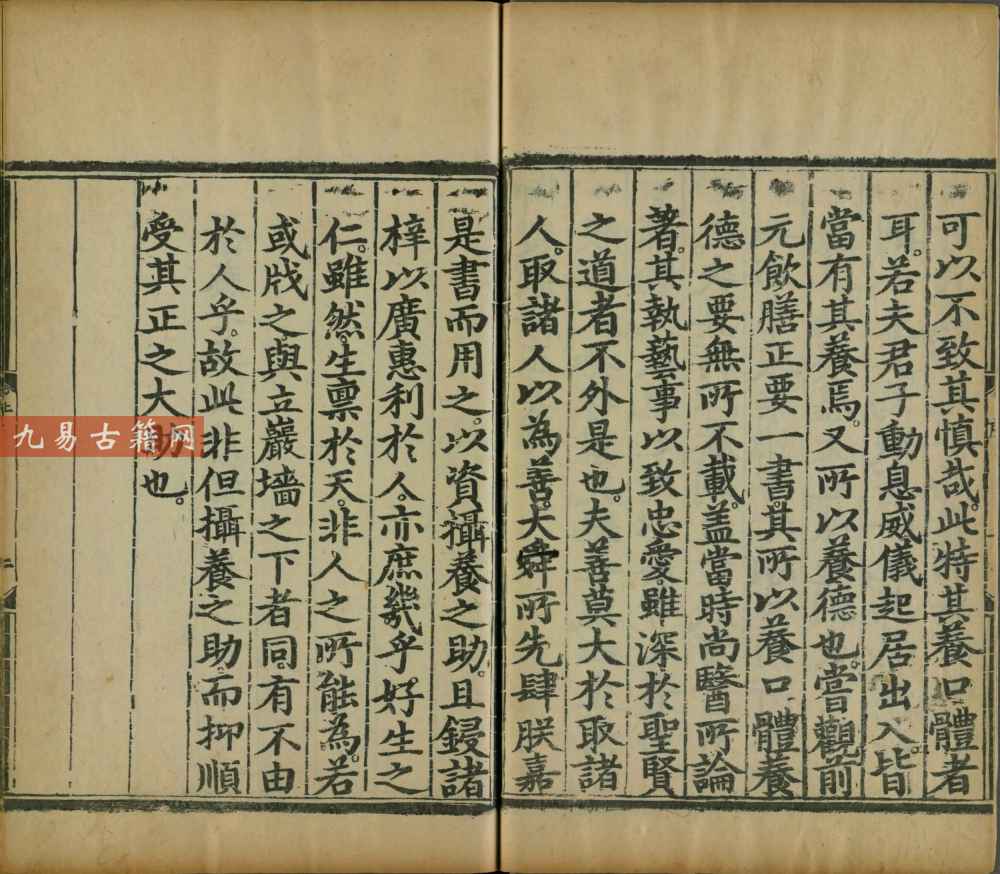 可以不致其慎哉。此特其養口體者
耳。若夫君子動息威儀起居出入。皆
當有其養焉。又所以養德也。嘗觀前
元飲膳正要一書。其所以養口體養
德之要無所不載。盖當時尚醫所論
著。其執藝事以致忠愛。雖深於聖賢
之道者不外是也。夫善莫大於取諸
人。取諸人以為善。大舜所先肆朕嘉
是書而用之。以資攝養之助。且鋟諸
梓以廣惠利於人。亦庶幾乎。好生之
仁。雖然。生禀於天。非人之所能為。若
或戕之與立巖墻之下者同。有不由
於人乎。故此非但攝養之助。而抑順
受其正之大助也。
九易古籍网